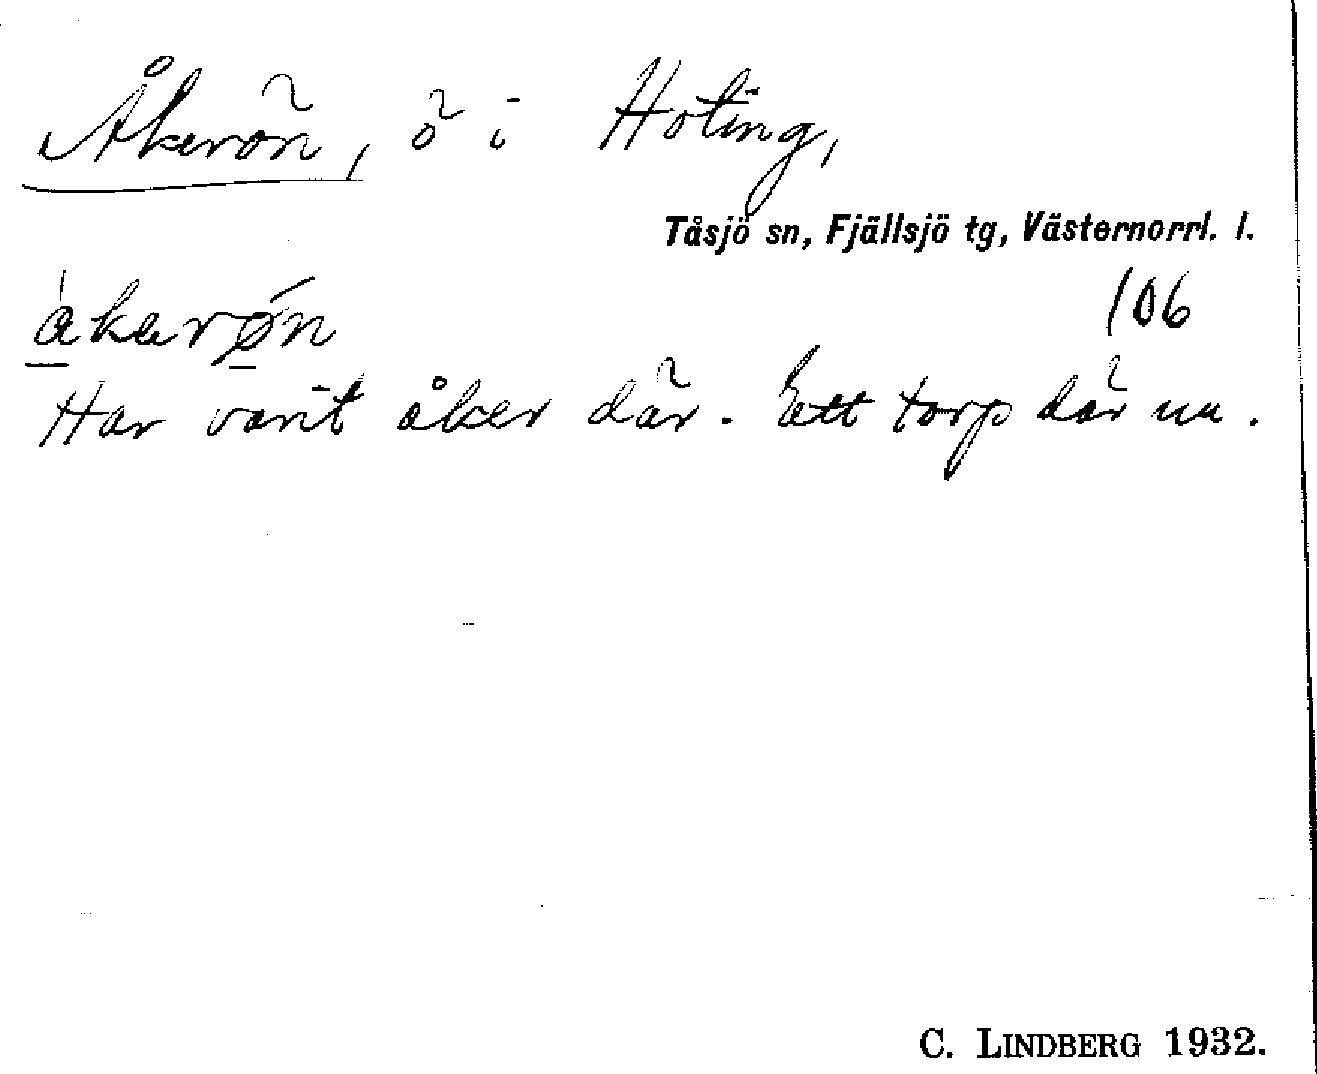 Åkerön, ö i Hoting,
Tåsjö sn, Fjällsjö tg, Västernorrl. l.
àkerǿn
106
Har varit åker där. Ett torp där nu.
C. LINDBERG 1932.